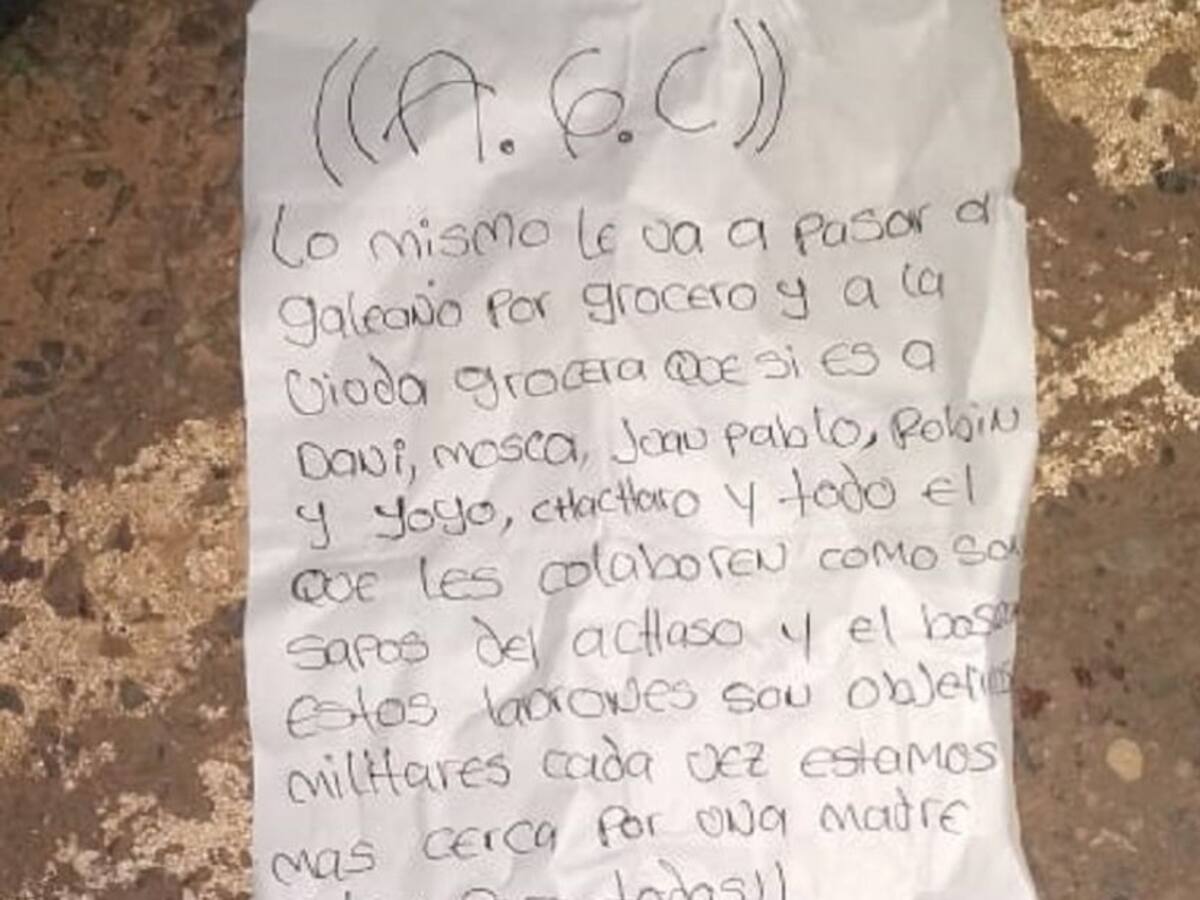 ((A.G.C))
Lo mismo le va a pasar a
galeano por grocero y a la
viuda grocera que si es a
Dani, mosca, Juan pablo, Robin
y yoyo, cHacHaro y todo el
que les colaboren como son
sapos del acHaso y el
estos ladrones son objetivos
militares cada vez estamos
mas cerca por una madre
todas))